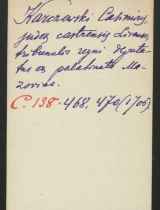 Karczewski Casimirus,
judex castrensis Livensis,
tribunalis regni deputa-
tus ex palatinatu Ma-
zoviae.
C. 138-468, 470 (1705)